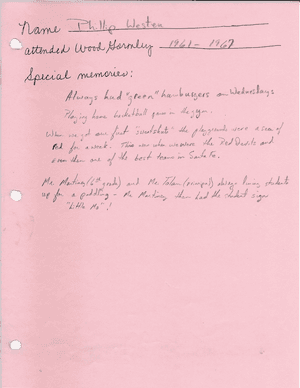 Name Phillip Weston
attended Wood Gormley 1961 - 1967
Special memories:
Always had "green" hamburgers on Wednesdays
Playing home basketball games in the gym.
When we got our first "sweatshirts" the playgrounds were a sea of
Red for a week. This was when we were the Red Devils and
even then one of the best teams in Santa Fe.
Mr. Martinez (6th grade) and Mr. (principal) always lining students
up for a paddling - Mr. Martinez then had the student sign
"Little Mo"!